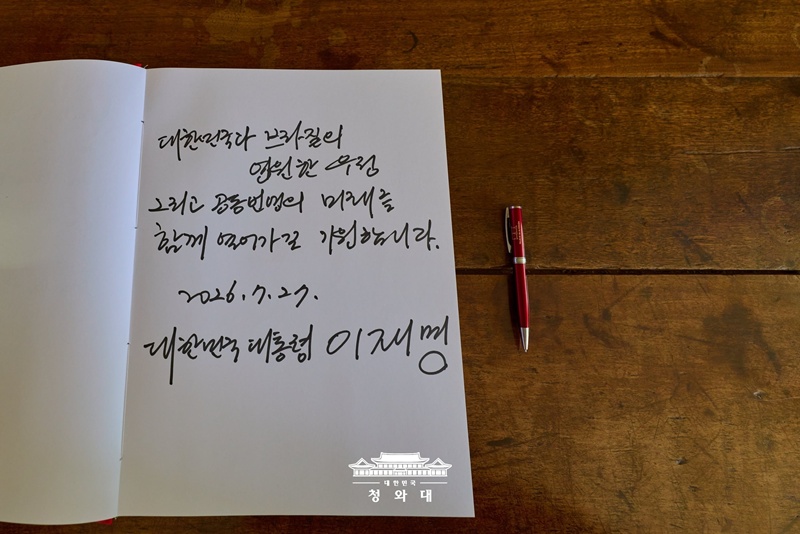 대한민국과 브라질의
영원한 우정
그리고 공동번영의 미래를
함께 열어가길 기원합니다.
2026. 7. 27.
대한민국 대통령 이재명
대한민국
청와대